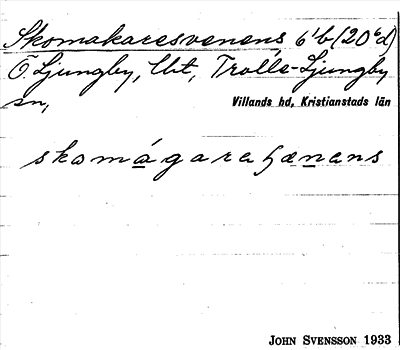 Skomakaresvenens 6¹b (20⁶d)
Ö. Ljungby, Ubt, Trolle-Ljungby
sn, Villands hd, Kristianstads län
skomagara
JOHN SVENSSON 1933